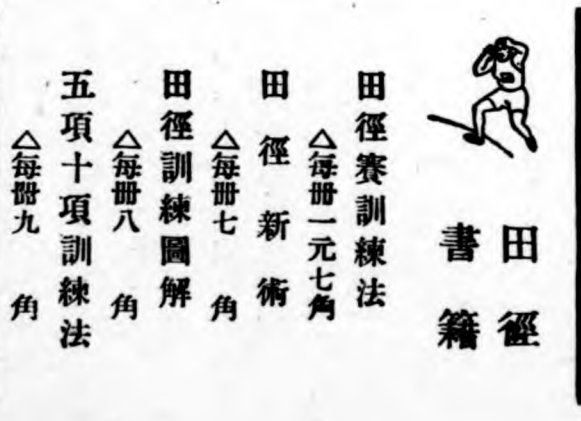 田徑
書籍
田徑賽訓練法
△每册一元七角
田徑新術
△每册七角
田徑訓練圖解
△每册八角
五項十項訓練法
△每册九角